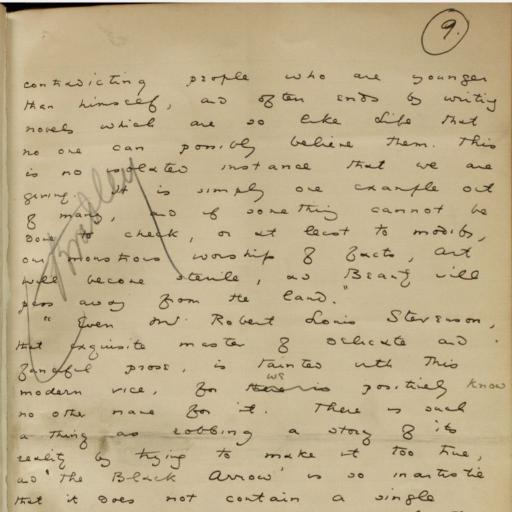 9.
contradicting people who are younger
than himself, and often ends by writing
novels which are so like life that
no one can possibly believe them. This
is no isolated instance that we are
giving. It is simply one example out
of many, and if something cannot be
done to check, or at least to modify,
our monstrous worship of facts, Art
will become sterile, and Beauty will
pass away from the land."
"Even Mr. Robert Louis Stevenson,
that exquisite master of delicate and
fanciful prose, is tainted with this
modern vice, for we positively know
no other name for it. There is such
a thing as robbing a story of its
reality by trying to make it too true,
and 'The Black Arrow' is so inartistic
that it does not contain a single